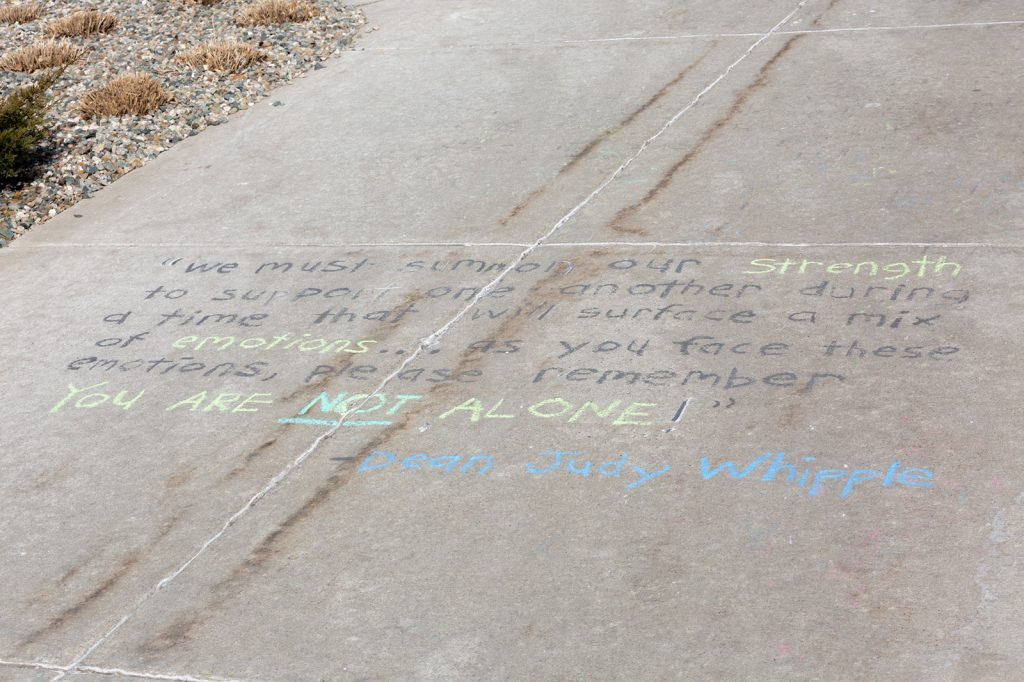 "we must summon our strength
to support one another during
a time that will surface a mix
of emotions.... as you face these
emotions, please remember
You ARE NOT ALONE!"
-Dean Judy Whipple